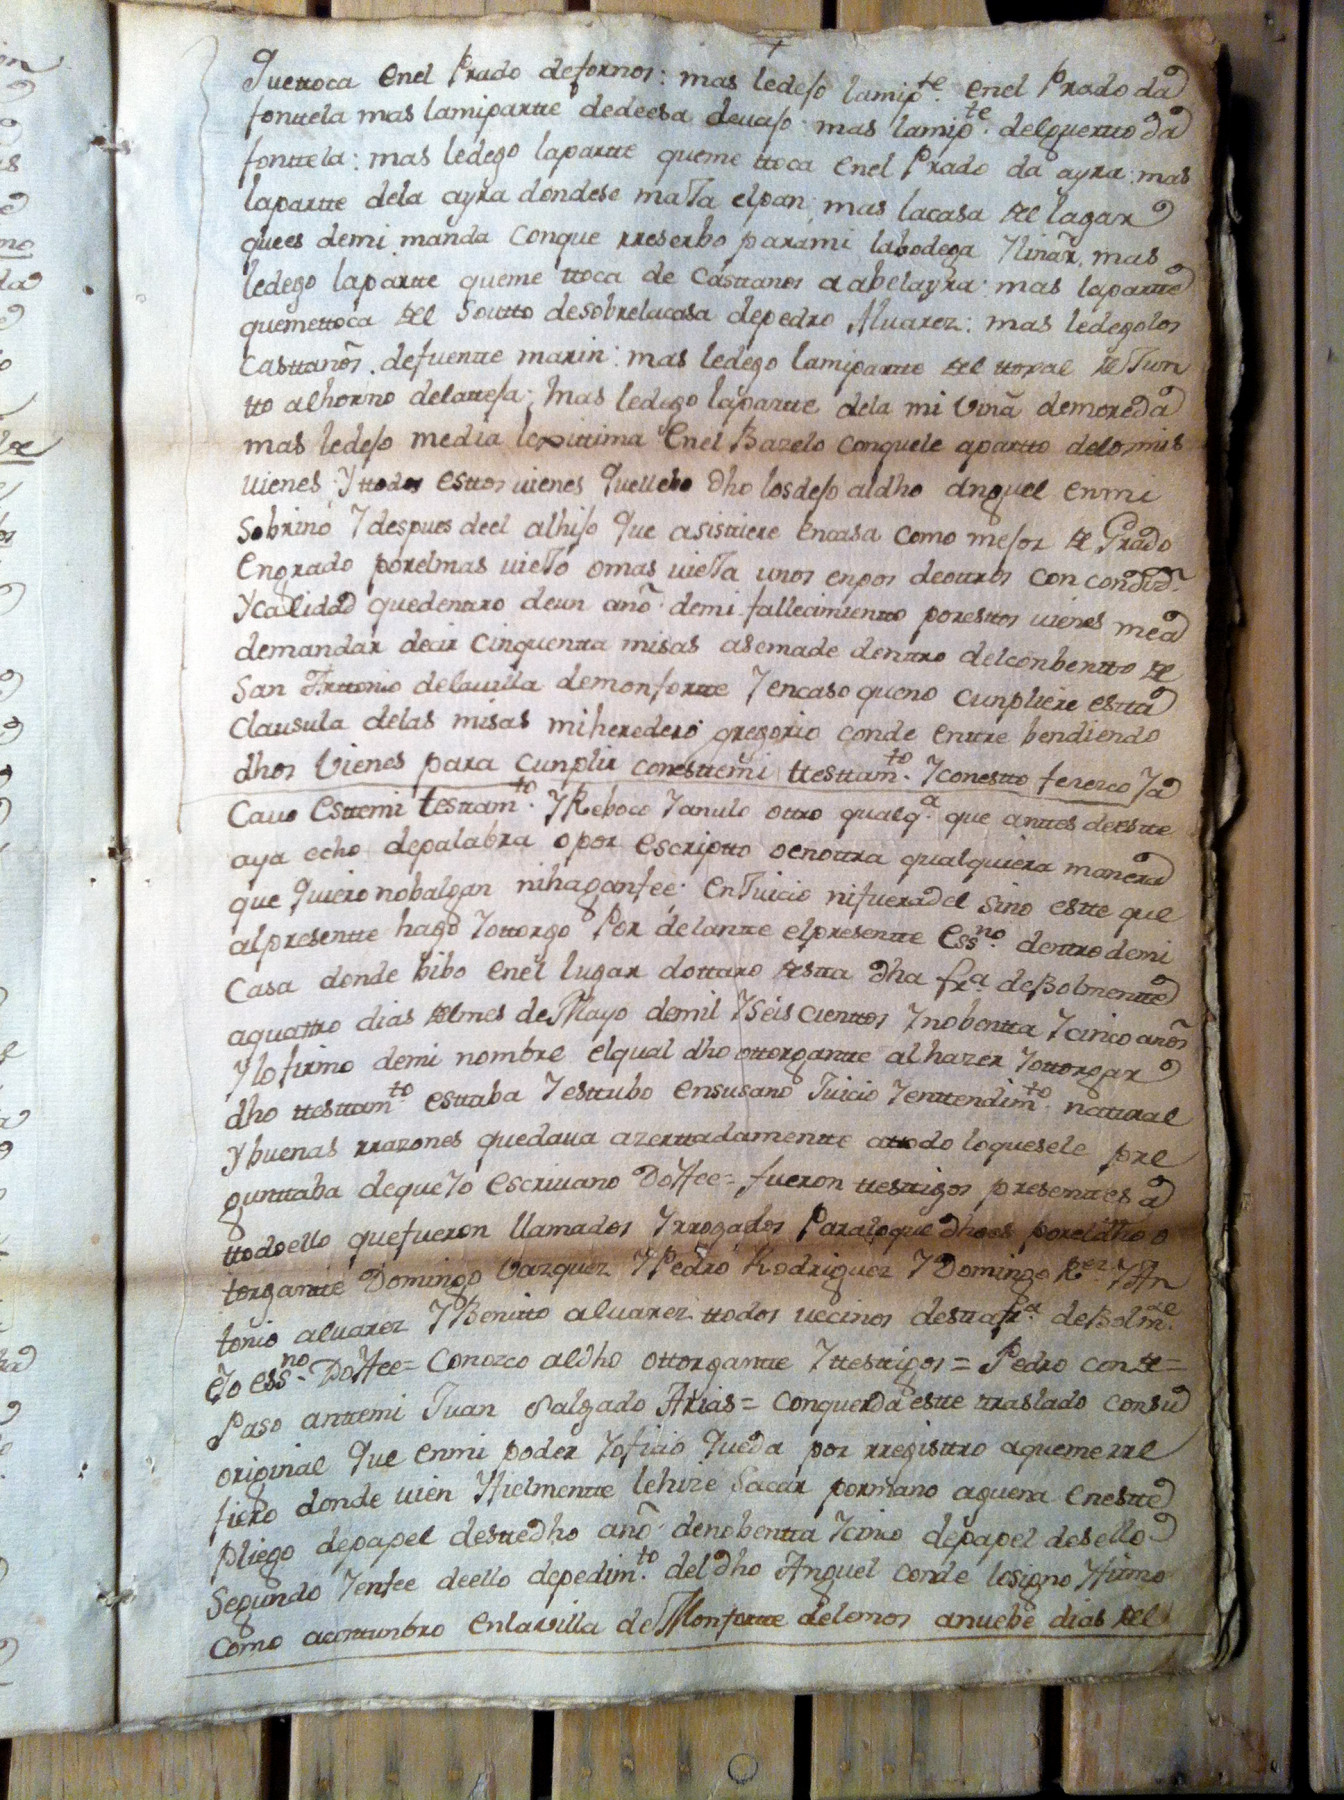 Quettoca enel Prado defornos: mas ledejo lamipte. enel Prado da
fonttela mas lamipartte dedeesa deuajo mas lamipte. delquertto da
fonttela: mas ledego lapartte queme ttoca enel Prado da ayra: mas
lapartte dela ayra dondese maJa elpan; mas lacasa del lagar
quees demi manda conque rreserbo parami labodega Y linar, mas
ledego lapartte queme ttoca de casttanos a abelayra: mas lapartte
quemettoca del Soutto desobrelacasa depedro Aluarez: mas ledegolos
casttaños. defuentte marin: mas ledego lamipartte del ttoral de Jun
tto alhorno delattesa; mas ledego lapartte dela mi viña demoreda
mas ledejo media lexittima enel Bazelo conquele apartto delosmis
uienes Y ttodos esttos uienes Quelleuo dho losdejo aldho anguel enmi
Sobrino Y despues deel alhijo Que asisttiere encasa como mejor de Grado
engrado porelmas uieJo o mas uieJa unos enpos deottros con condizn.
Y calidad quedentro deun año. demi fallecimiento poresttos uienes mea
demandar decir cinquentta misas asemade denttro delconbentto de
San Antonio delauilla demonfortte Y encaso queno cunpliere estta
clausula delas misas miheredero gregorio conde enttre bendiendo
dhos Vienes para cunplir conesttemi ttesttamto. Y conestto fenezco Y a
Cauo esttemi testtamto. Y Reboco Y anulo ottro qualqa. que anttes deestte
aya echo depalabra o por escriptto oenottra qualquiera manera
que Quiero nobalgan nihaganfee. en Juicio nifueradel sino estte que
alpresentte hago Y ottorgo Por delantte elpresentte essno. denttrodemi
Casa donde bibo enel lugar dottaro destta dha fra. deBolmentte
aquattro dias delmes de Mayo demil Y seis cienttos Y nobentta Y cinco años
Y lo firmo demi nombre elqual dho ottorgantte alhazer Y ottorgar
dho ttesttamto. esttaba Y esttubo ensusano Juicio Y enttendimto. natural
Y buenas rrazones quedaua azerttadamentte attodo loquesele pre
gunttaba dequeYo escriuano DoYfee= fueron ttesttigos presenttes a
ttodoello quefueron llamados Y rrogados Paraloque dhoes poreldho o
torgantte Domingo Vazquez Y Pedro Rodriguez Y Domingo Rez. Y An
tonio aluarez Y Benitto aluarez ttodos uecinos desttafra. deBolme.
eYo essno. DoYfee= Conozco aldho ottorgantte Y ttesttigos= Pedro conde=
Paso anttemi Juan Salgado Arias= Conquerda estte ttraslado consu
original Que enmi poder Y oficio Queda por rregisttro aquemerre
fiero donde uien Y fielmentte lehize sacar pormano agena enestte
pliego depapel desttedho año. denobentta Y cinco depapel desello
Segundo Y enfee deello depedimto. deldho Anguel conde losigno Y firmo
como acosttunbro enlavilla de Monfortte delemos anuebe dias del